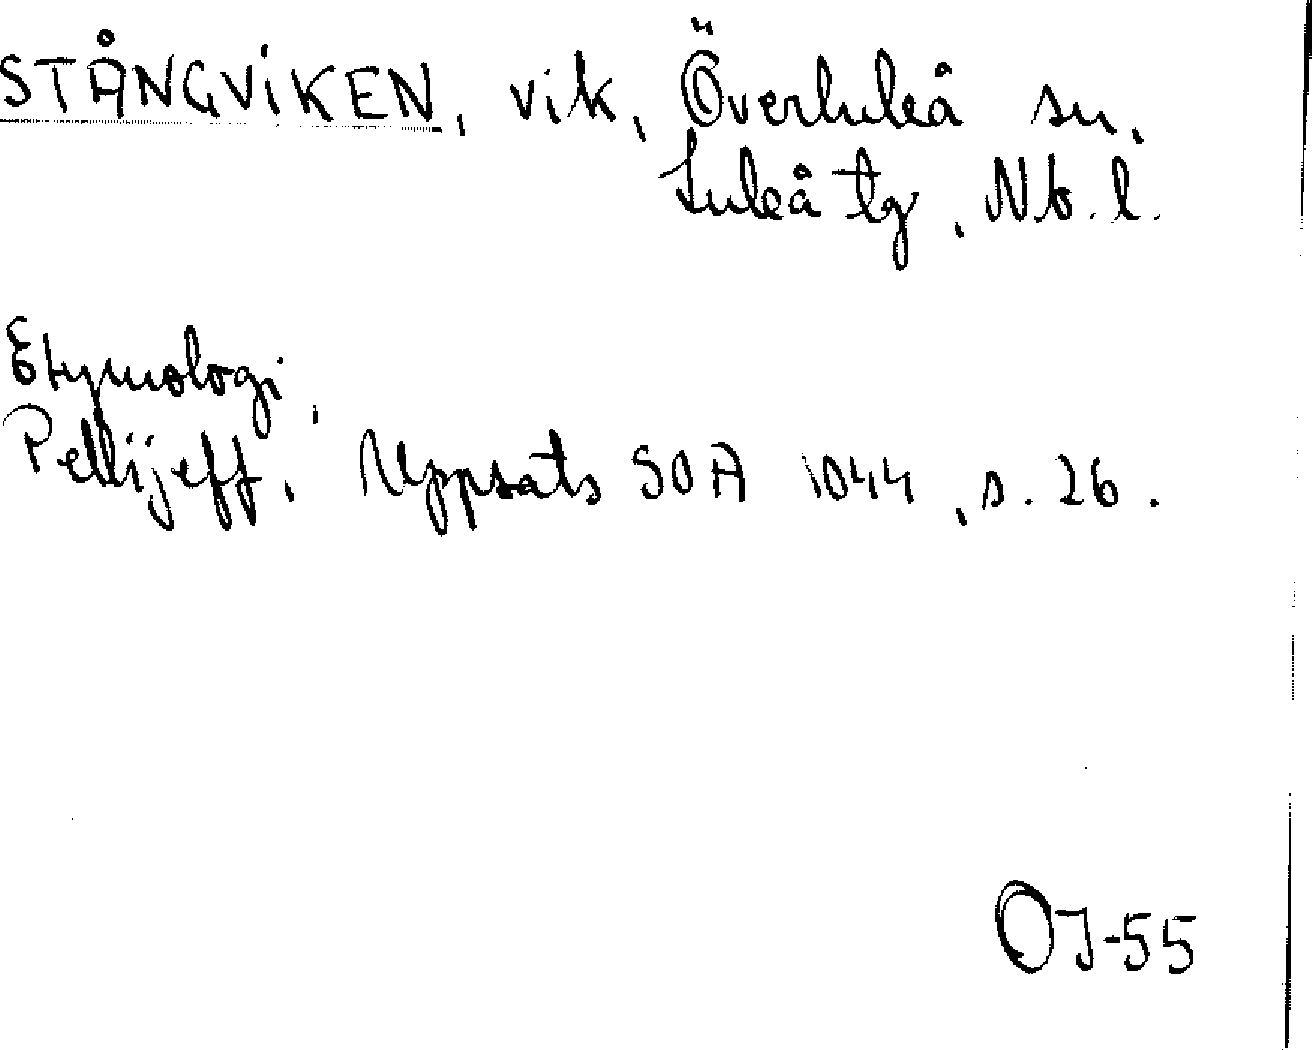 STÅNGVIKEN, vik, Överluleå sn,
Luleå tg, Nb. l.
Etymologi,
Pellijeff, Uppsats SOA 1044, s. 26.
OJ-55